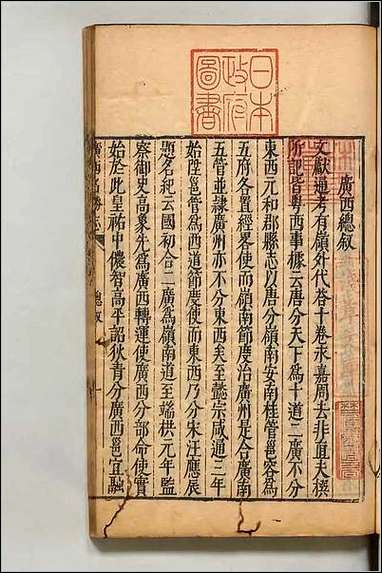 日本
政府
圖書
廣西總叙
文獻通考有嶺外代荅十卷永嘉周去非直夫撰
所記皆粤西事據云唐分天下爲十道二廣不分
東西元和郡縣志以唐分嶺南安南桂管邕容爲
五府各置經畧使而嶺南節度治廣州是合廣南
五管並隷廣州亦不分東西矣至懿宗咸通三年
始陞邕管爲西道節度使而東西乃分宋汪應展
題名紀云國初合二廣爲嶺南道至端拱元年監
察御史高象先爲廣西轉運使廣西分部命使實
始於此皇祐中儂智高平詔狄青分廣西邕宜融
總叙
一